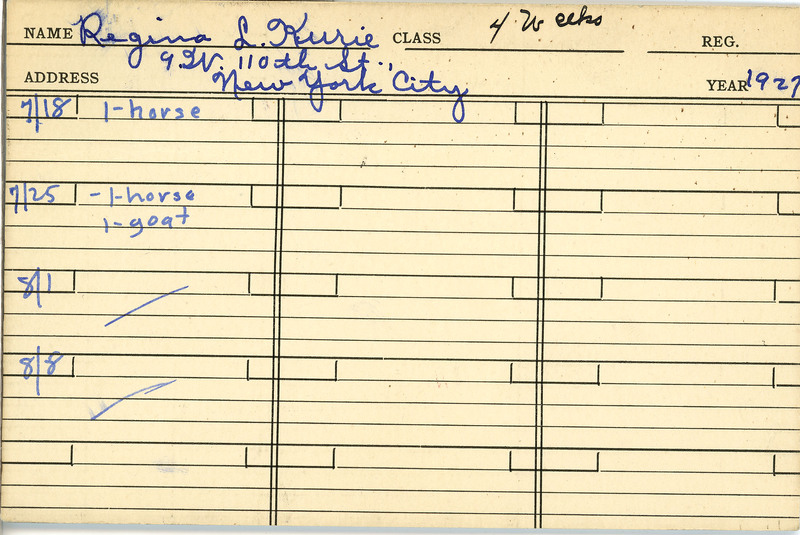 NAME Regina L. Kurie CLASS 4 Weeks REG.
9 W. 110th St.,
ADDRESS New York City YEAR 1927
7/18 1-horse
7/25 -1-horse
1-goat
8/1
8/8